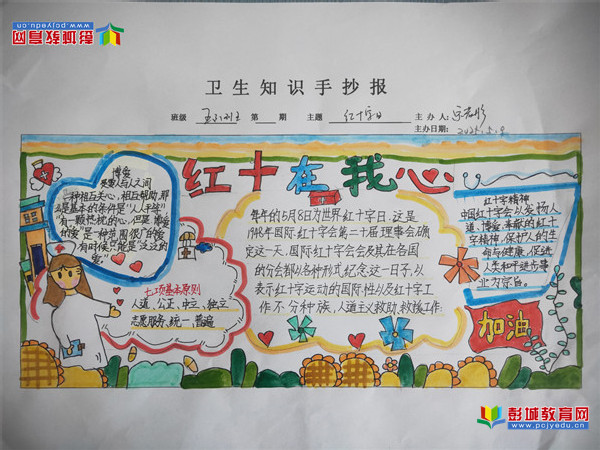 彭城教育网
www.pcjyedu.cn
卫生知识手抄报
班级 第 期 主题 红十字日 主办人:
主办日期:
红十在我心
博爱
是人与人之间
一种相互关心,相互帮助,那
是基本的条件是“人人平等”
有一颗扰扰的心,但是博爱
的“爱”是一种范围很广的爱
有时候只能是“泛泛的
爱”
每年的5月8日为世界红十字日,这是
1948年国际红十字会第二十届理事会确
定这一天,国际红十字会会及其在各国
的分会都以各种形式纪念这一日子,以
表示红十字运动的国际性以及红十字工
作不分种族,人道主义救助,救援工作.
红十字精神
中国红十字会以发扬人
道、博爱、奉献的红十
字精神,保护人的生
命与健康,促进
人类和平进步事
业为宗旨。
七项基本原则
人道、公正、中立、独立
志愿服务、统一、普遍
加油
彭城教育网
www.pcjyedu.cn